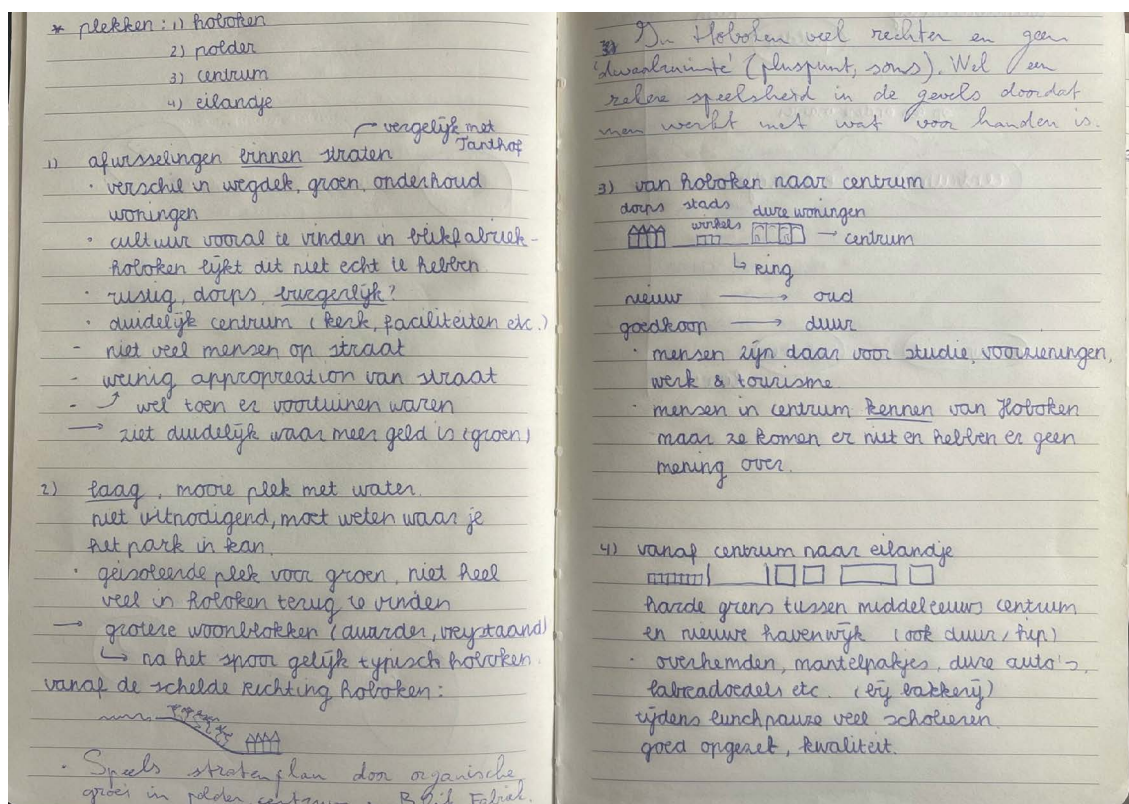 * plekken: 1) hoboken
2) polder
3) centrum
4) eilandje
vergelijk met
Tanthof
1) afwisselingen binnen straten
· verschil in wegdek, groen, onderhoud
woningen
· cultuur vooral te vinden in blikfabriek -
hoboken lijkt dit niet echt te hebben
· rustig, dorps, burgerlijk?
· duidelijk centrum (kerk, faciliteiten etc.)
- niet veel mensen op straat
- weinig appropreation van straat
- wel toen er voortuinen waren
→ ziet duidelijk waar meer geld is (groen)
2) laag, mooie plek met water.
niet uitnodigend, moet weten waar je
het park in kan.
· geïsoleerde plek voor groen, niet heel
veel in hoboken terug te vinden
→ grotere woonblokken (duurder, vrijstaand)
↳ na het spoor gelijk typisch hoboken.
vanaf de schelde richting hoboken:
· Speels stratenplan door organische
groei in polder centrum Blik Fabriek.
3) In Hoboken veel rechter en geen
'dwaalruimte' (pluspunt, soms). Wel een
zekere speelsheid in de gevels doordat
men werkt met wat voor handen is.
3) van hoboken naar centrum
dorps stads dure woningen
winkels → centrum
↳ ring
nieuw → oud
goedkoop → duur
· mensen zijn daar voor studie, voorzieningen,
werk & tourisme
· mensen in centrum kennen van Hoboken
maar ze komen er niet en hebben er geen
mening over.
4) vanaf centrum naar eilandje
harde grens tussen middeleeuws centrum
en nieuwe havenwijk (ook duur/hip)
· overhemden, mantelpakjes, dure auto's,
labradoedels etc. (bij bakkerij)
tijdens lunchpauze veel scholieren.
goed opgezet, kwaliteit.